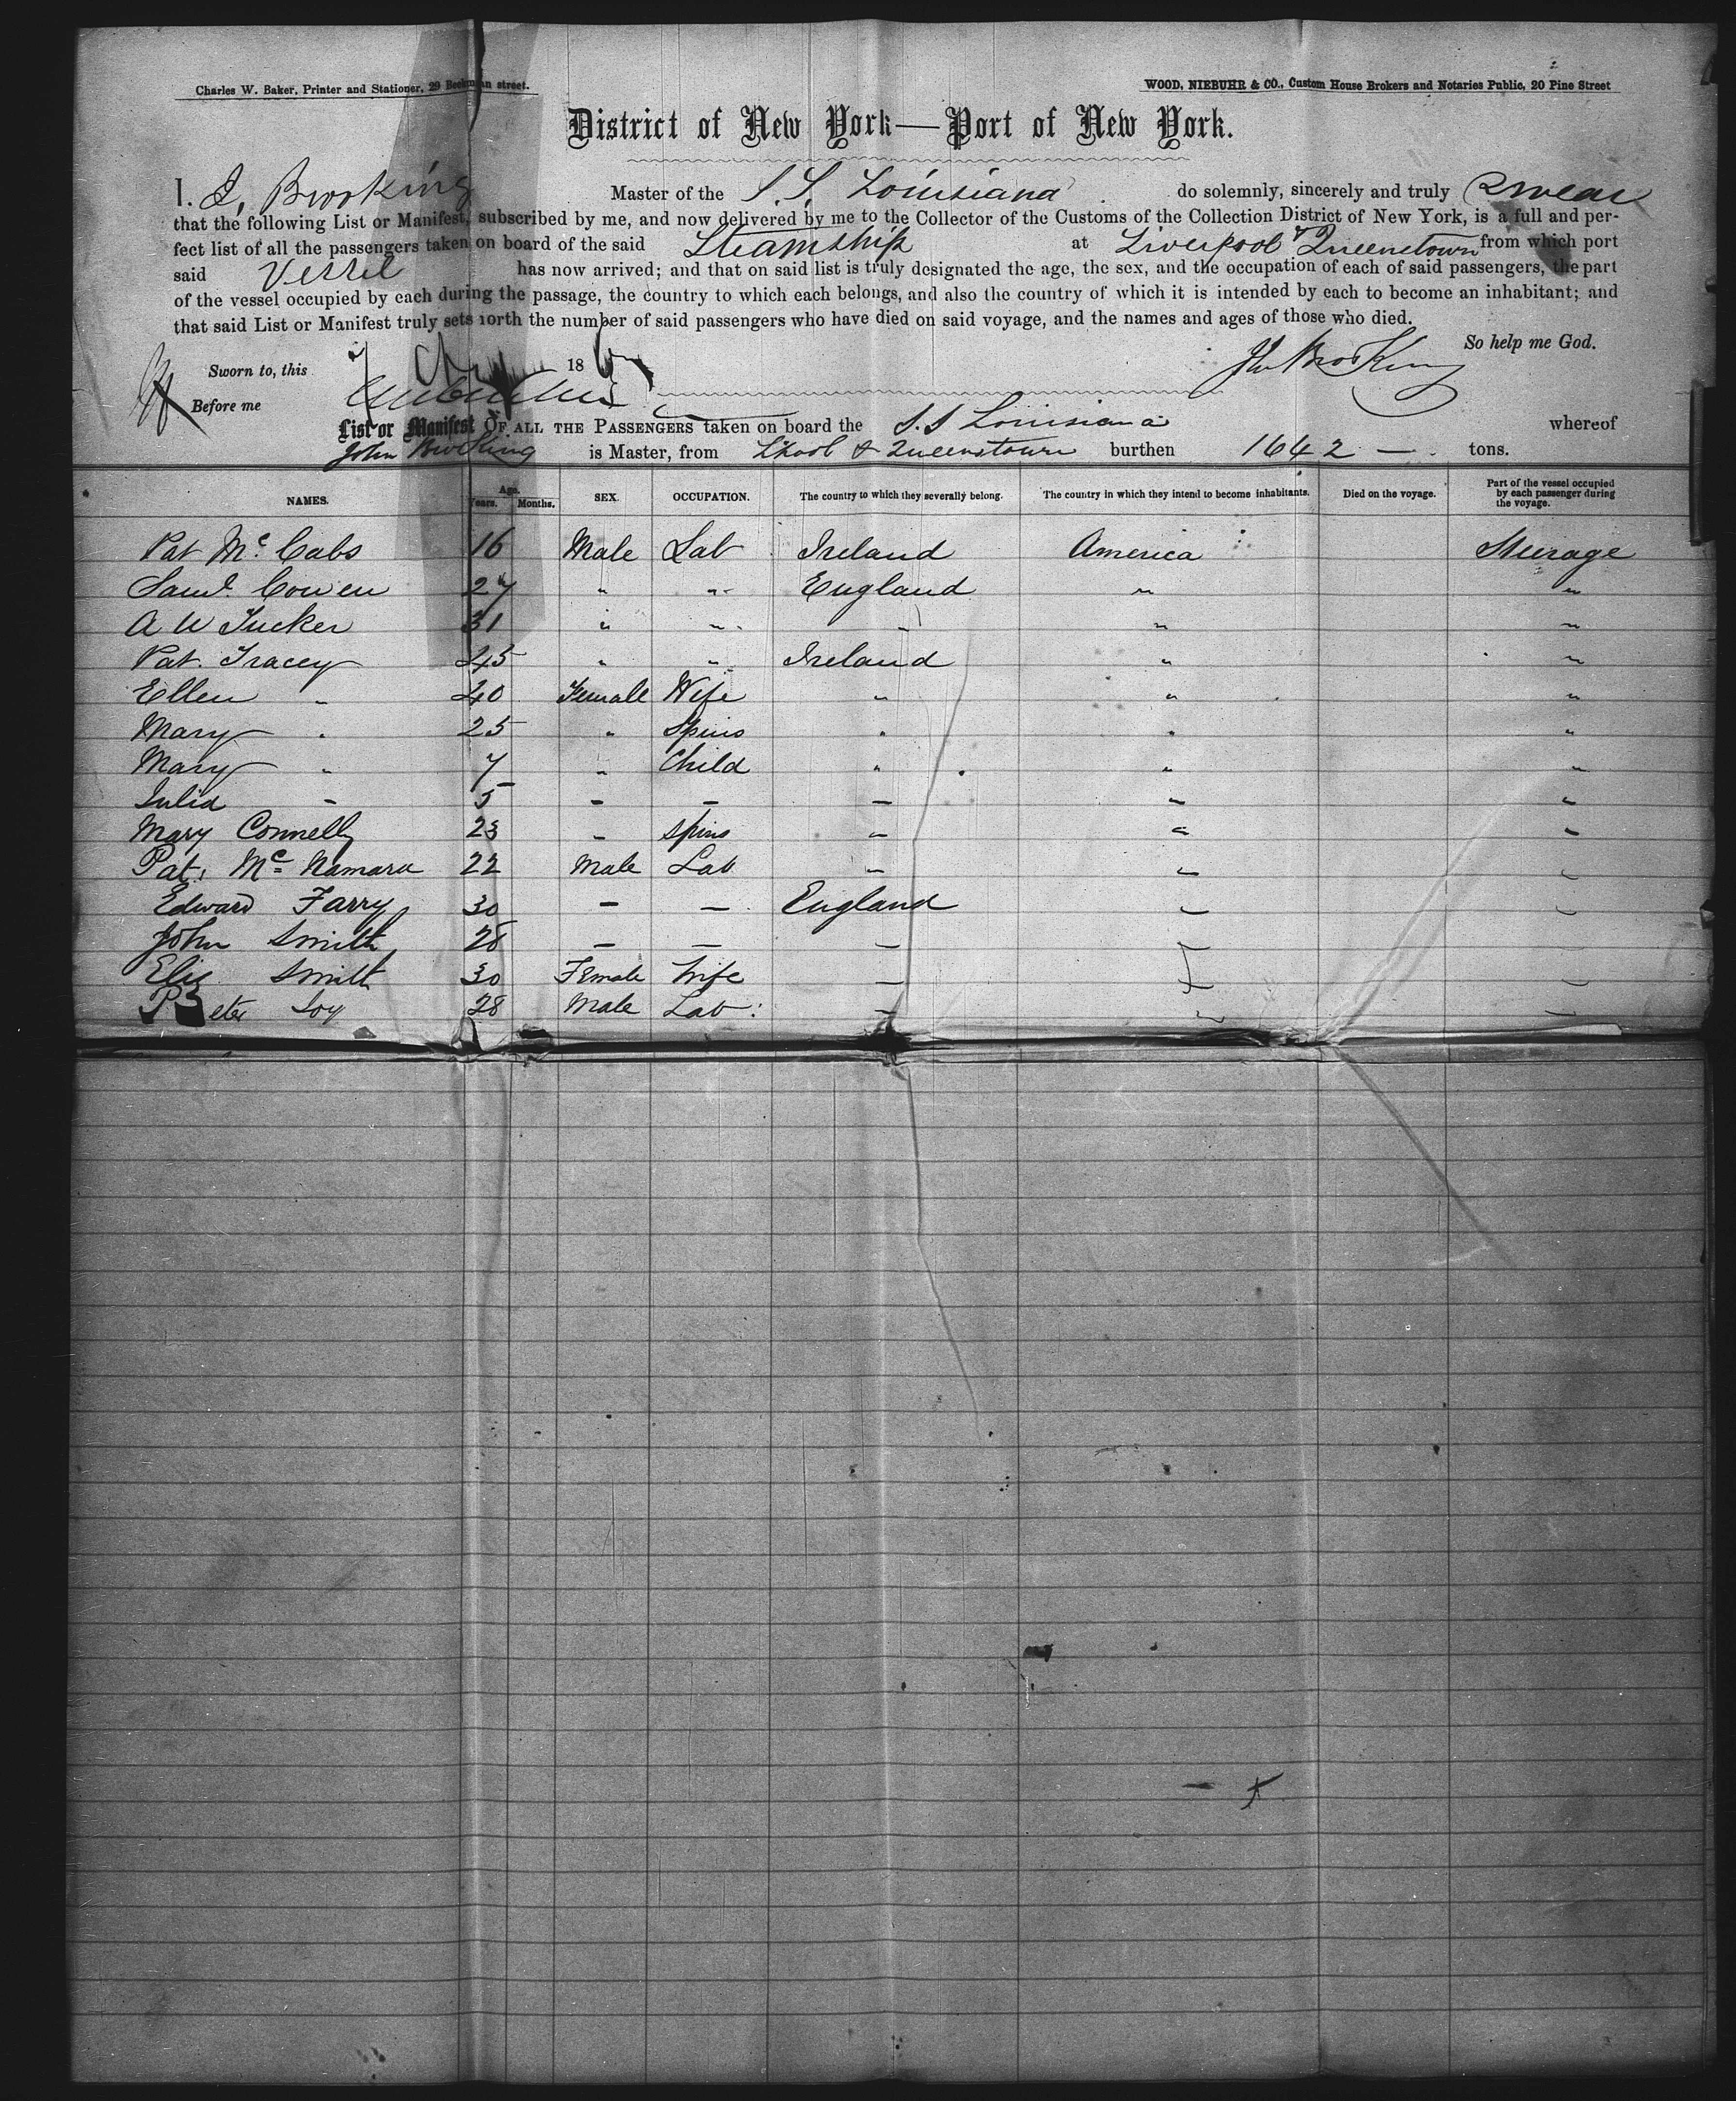 Charles W. Baker, Printer and Stationer, 29 Beekman street. WOOD, NIEBUHR & CO., Custom House Brokers and Notaries Public, 20 Pine Street
District of New York—Port of New York.
I. J, Brooking Master of the S. S. Louisiana do solemnly, sincerely and truly swear
that the following List or Manifest, subscribed by me, and now delivered by me to the Collector of the Customs of the Collection District of New York, is a full and per-
fect list of all the passengers taken on board of the said Steamship at Liverpool & Queenstown from which port
said Vessel has now arrived; and that on said list is truly designated the age, the sex, and the occupation of each of said passengers, the part
of the vessel occupied by each during the passage, the country to which each belongs, and also the country of which it is intended by each to become an inhabitant; and
that said List or Manifest truly sets forth the number of said passengers who have died on said voyage, and the names and ages of those who died.
So help me God.
Sworn to, this 18 Jn Brooking
Before me
List or Manifest OF ALL THE PASSENGERS taken on board the S. S Louisiana whereof
John Brooking is Master, from L'pool & Queenstown burthen 1642 — tons.
NAMES. Age. Years. Months. SEX. OCCUPATION. The country to which they severally belong. The country in which they intend to become inhabitants. Died on the voyage. Part of the vessel occupied by each passenger during the voyage.
Pat Mc Cabs 16 Male Lab Ireland America Steerage
Saml Cowen 27 " " England " "
A W Tucker 31 " " " " "
Pat. Tracey 45 " " Ireland " "
Ellen " 40 Female Wife " " "
Mary " 25 " Spins " " "
Mary " 7 " Child " " "
Julia " 5 " " " " "
Mary Connelly 23 " Spins " " "
Pat. Mc Namara 22 Male Lab " " "
Edward Farry 30 — — England " "
John Smith 28 — — — " "
Eliz Smith 30 Female Wife — " "
Peter Loy 28 Male Lab: — " "